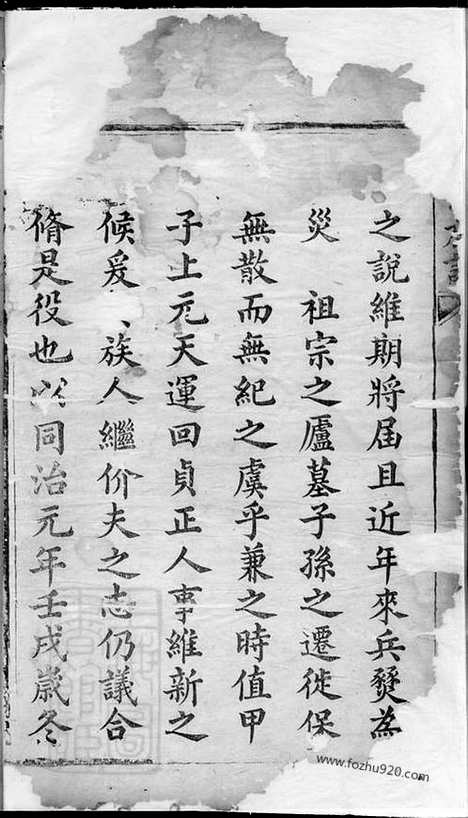 之說維期將屆且近年來兵燹為
災 祖宗之廬墓子孫之遷徙保
無散而無紀之虞乎兼之時值甲
子上元天運回貞正人事維新之
候爰 族人繼价夫之志仍議合
脩是役也以同治元年壬戌歲冬
www.fozhu920.com